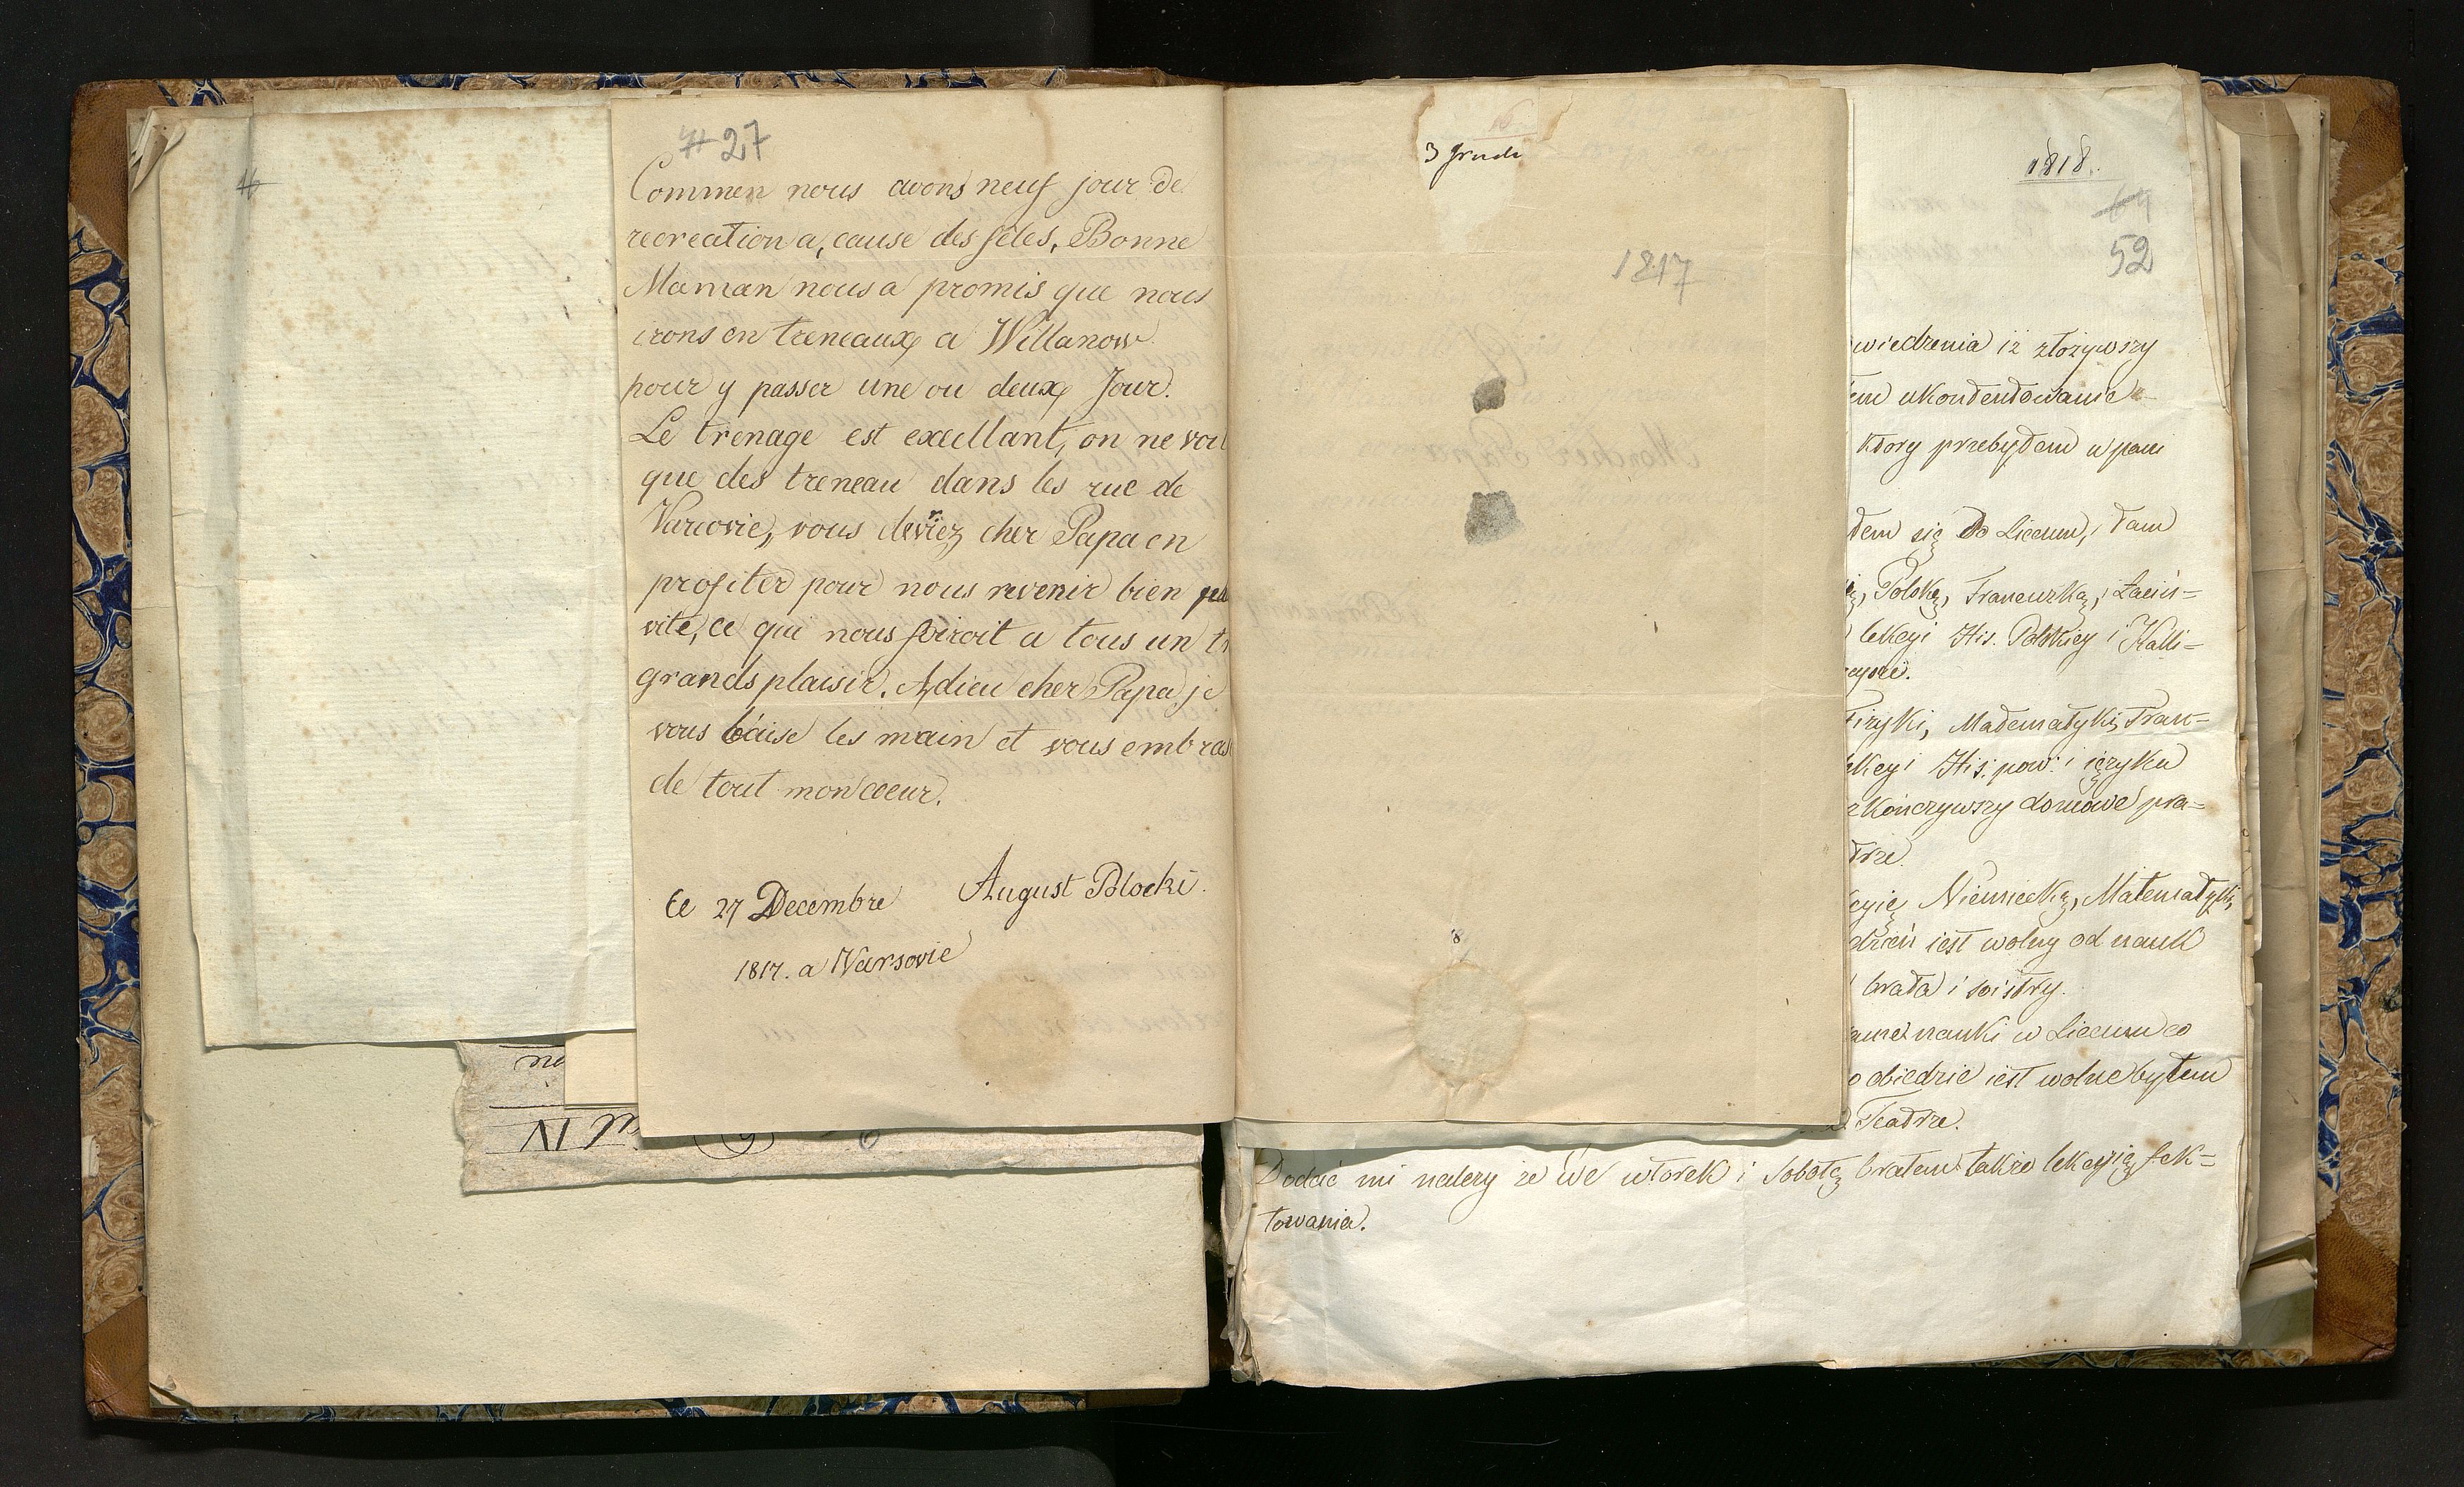 27
Commen nous avons neuf jour de
recreation a, cause des fêtes, Bonne
Maman nous a promis que nous
irons en treneaux a Willanow
pour y passer une ou deux Jour.
Le trenage est excellant, on ne voit
que des treneau dans les rue de
Varcovie, vous devriez cher Papa en
profiter pour nous revenir bien
vite, ce qui nous feiroit a tous un
grands plaisir. Adieu cher Papa je
vous baise les main et vous embras
de tout mon coeur.
August Potocki.
Ce 27 Decembre
1817. a Varsovie
3 grudn
1817
8
1818.
52
wiedzenia iż złożywszy
ukontentowanie
ktory przebyłem u pani
łem się do Liceum, i tam
Polską, Francuzką, i Łaciń=
lekcyi His. Polskiey i Kalli=
Fizyki, Matematyki, Fran=
His. pow. i ięzyku
kończywszy domowe pra=
trze.
cyię Niemiecką, Matematyki,
dzień iest wolny od nauk
brata i siostry.
nauki w Liceum co
o obiedzie iest wolne byłem
Teatrze.
Dodać mi należy że we wtorek i Sobotę brałem także lekcyię fek=
towania.